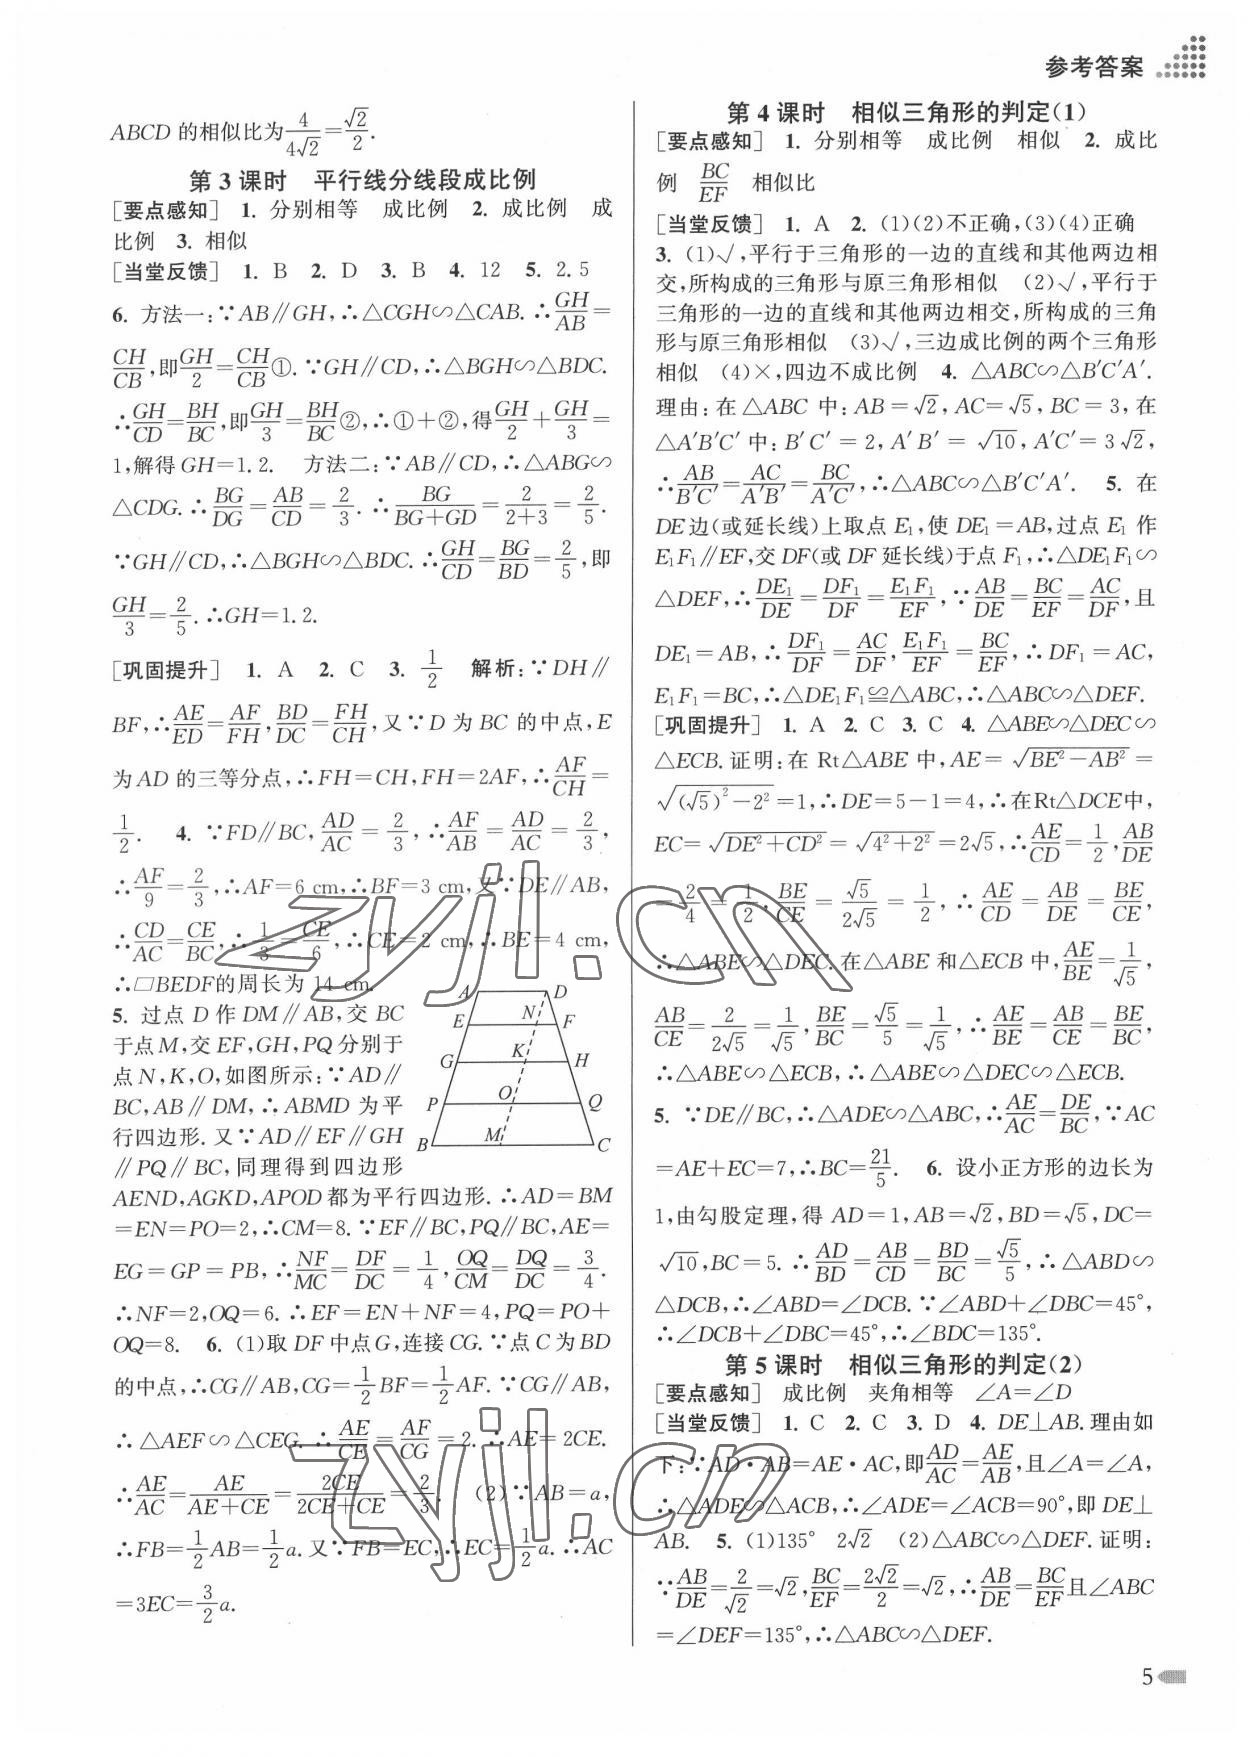 参考答案
ABCD 的相似比为4/(4√2)=√2/2.
第 3 课时　平行线分线段成比例
[要点感知]　1. 分别相等　成比例　2. 成比例　成
比例　3. 相似
[当堂反馈]　1. B　2. D　3. B　4. 12　5. 2.5
6. 方法一:∵AB∥GH,∴△CGH∽△CAB. ∴GH/AB=
CH/CB,即GH/2=CH/CB①. ∵GH∥CD,∴△BGH∽△BDC.
∴GH/CD=BH/BC,即GH/3=BH/BC②,∴①+②,得GH/2+GH/3=
1,解得GH=1.2.　方法二:∵AB∥CD,∴△ABG∽
△CDG. ∴BG/DG=AB/CD=2/3. ∴BG/(BG+GD)=2/(2+3)=2/5.
∵GH∥CD,∴△BGH∽△BDC. ∴GH/CD=BG/BD=2/5,即
GH/3=2/5. ∴GH=1.2.
[巩固提升]　1. A　2. C　3. 1/2　解析:∵DH∥
BF,∴AE/ED=AF/FH,BD/DC=FH/CH,又∵D 为 BC 的中点,E
为AD 的三等分点,∴FH=CH,FH=2AF,∴AF/CH=
1/2.　4. ∵FD∥BC,AD/AC=2/3,∴AF/AB=AD/AC=2/3,
∴AF/9=2/3,∴AF=6 cm,∴BF=3 cm,又∵DE∥AB,
∴CD/AC=CE/BC,∴1/3=CE/6,∴CE=2 cm,∴BE=4 cm,
∴□BEDF的周长为 14 cm.
5. 过点 D 作 DM∥AB,交 BC
于点M,交 EF,GH,PQ分别于
点 N,K,O,如图所示:∵AD∥
BC,AB∥DM,∴ABMD 为平
行四边形. 又∵AD∥EF∥GH
∥PQ∥BC,同理得到四边形
A D
E N F
G K H
P O Q
B M C
AEND,AGKD,APOD都为平行四边形. ∴AD=BM
=EN=PO=2,∴CM=8. ∵EF∥BC,PQ∥BC,AE=
EG=GP=PB,∴NF/MC=DF/DC=1/4,OQ/CM=DQ/DC=3/4.
∴NF=2,OQ=6. ∴EF=EN+NF=4,PQ=PO+
OQ=8.　6. (1)取 DF 中点G,连接 CG. ∵点 C 为 BD
的中点,∴CG∥AB,CG=1/2BF=1/2AF. ∵CG∥AB,
∴△AEF∽△CEG. ∴AE/CE=AF/CG=2. ∴AE=2CE.
∴AE/AC=AE/(AE+CE)=2CE/(2CE+CE)=2/3.　(2)∵AB=a,
∴FB=1/2AB=1/2a. 又∵FB=EC,∴EC=1/2a. ∴AC
=3EC=3/2a.
第 4 课时　相似三角形的判定(1)
[要点感知]　1. 分别相等　成比例　相似　2. 成比
例　BC/EF　相似比
[当堂反馈]　1. A　2. (1)(2)不正确,(3)(4)正确
3. (1)√,平行于三角形的一边的直线和其他两边相
交,所构成的三角形与原三角形相似　(2)√,平行于
三角形的一边的直线和其他两边相交,所构成的三角
形与原三角形相似　(3)√,三边成比例的两个三角形
相似　(4)×,四边不成比例　4. △ABC∽△B′C′A′.
理由:在△ABC 中:AB=√2,AC=√5,BC=3,在
△A′B′C′ 中:B′C′=2,A′B′=√10,A′C′=3√2,
∴AB/B′C′=AC/A′B′=BC/A′C′,∴△ABC∽△B′C′A′.　5. 在
DE边(或延长线)上取点 E₁,使 DE₁=AB,过点 E₁ 作
E₁F₁∥EF,交 DF(或 DF 延长线)于点 F₁,∴△DE₁F₁∽
△DEF,∴DE₁/DE=DF₁/DF=E₁F₁/EF,∵AB/DE=BC/EF=AC/DF,且
DE₁=AB,∴DF₁/DF=AC/DF,E₁F₁/EF=BC/EF,∴DF₁=AC,
E₁F₁=BC,∴△DE₁F₁≌△ABC,∴△ABC∽△DEF.
[巩固提升]　1. A　2. C　3. C　4. △ABE∽△DEC∽
△ECB.证明:在 Rt△ABE 中,AE=√(BE²-AB²)=
√((√5)²-2²)=1,∴DE=5-1=4,∴在Rt△DCE中,
EC=√(DE²+CD²)=√(4²+2²)=2√5,∴AE/CD=1/2,AB/DE
=2/4=1/2,BE/CE=√5/(2√5)=1/2,∴AE/CD=AB/DE=BE/CE,
∴△ABE∽△DEC.在△ABE 和△ECB 中,AE/BE=1/√5,
AB/CE=2/(2√5)=1/√5,BE/BC=√5/5=1/√5,∴AE/BE=AB/CE=BE/BC,
∴△ABE∽△ECB,∴△ABE∽△DEC∽△ECB.
5. ∵DE∥BC,∴△ADE∽△ABC,∴AE/AC=DE/BC,∵AC
=AE+EC=7,∴BC=21/5.　6. 设小正方形的边长为
1,由勾股定理,得 AD=1,AB=√2,BD=√5,DC=
√10,BC=5. ∴AD/BD=AB/CD=BD/BC=√5/5,∴△ABD∽
△DCB,∴∠ABD=∠DCB. ∵∠ABD+∠DBC=45°,
∴∠DCB+∠DBC=45°,∴∠BDC=135°.
第 5 课时　相似三角形的判定(2)
[要点感知]　成比例　夹角相等　∠A=∠D
[当堂反馈]　1. C　2. C　3. D　4. DE⊥AB.理由如
下:∵AD·AB=AE·AC,即AD/AC=AE/AB,且∠A=∠A,
∴△ADE∽△ACB,∴∠ADE=∠ACB=90°,即 DE⊥
AB.　5. (1)135°　2√2　(2)△ABC∽△DEF.证明:
∵AB/DE=2/√2=√2,BC/EF=2√2/2=√2,∴AB/DE=BC/EF且∠ABC
=∠DEF=135°,∴△ABC∽△DEF.
5
zyjl.cn
zyjl.cn